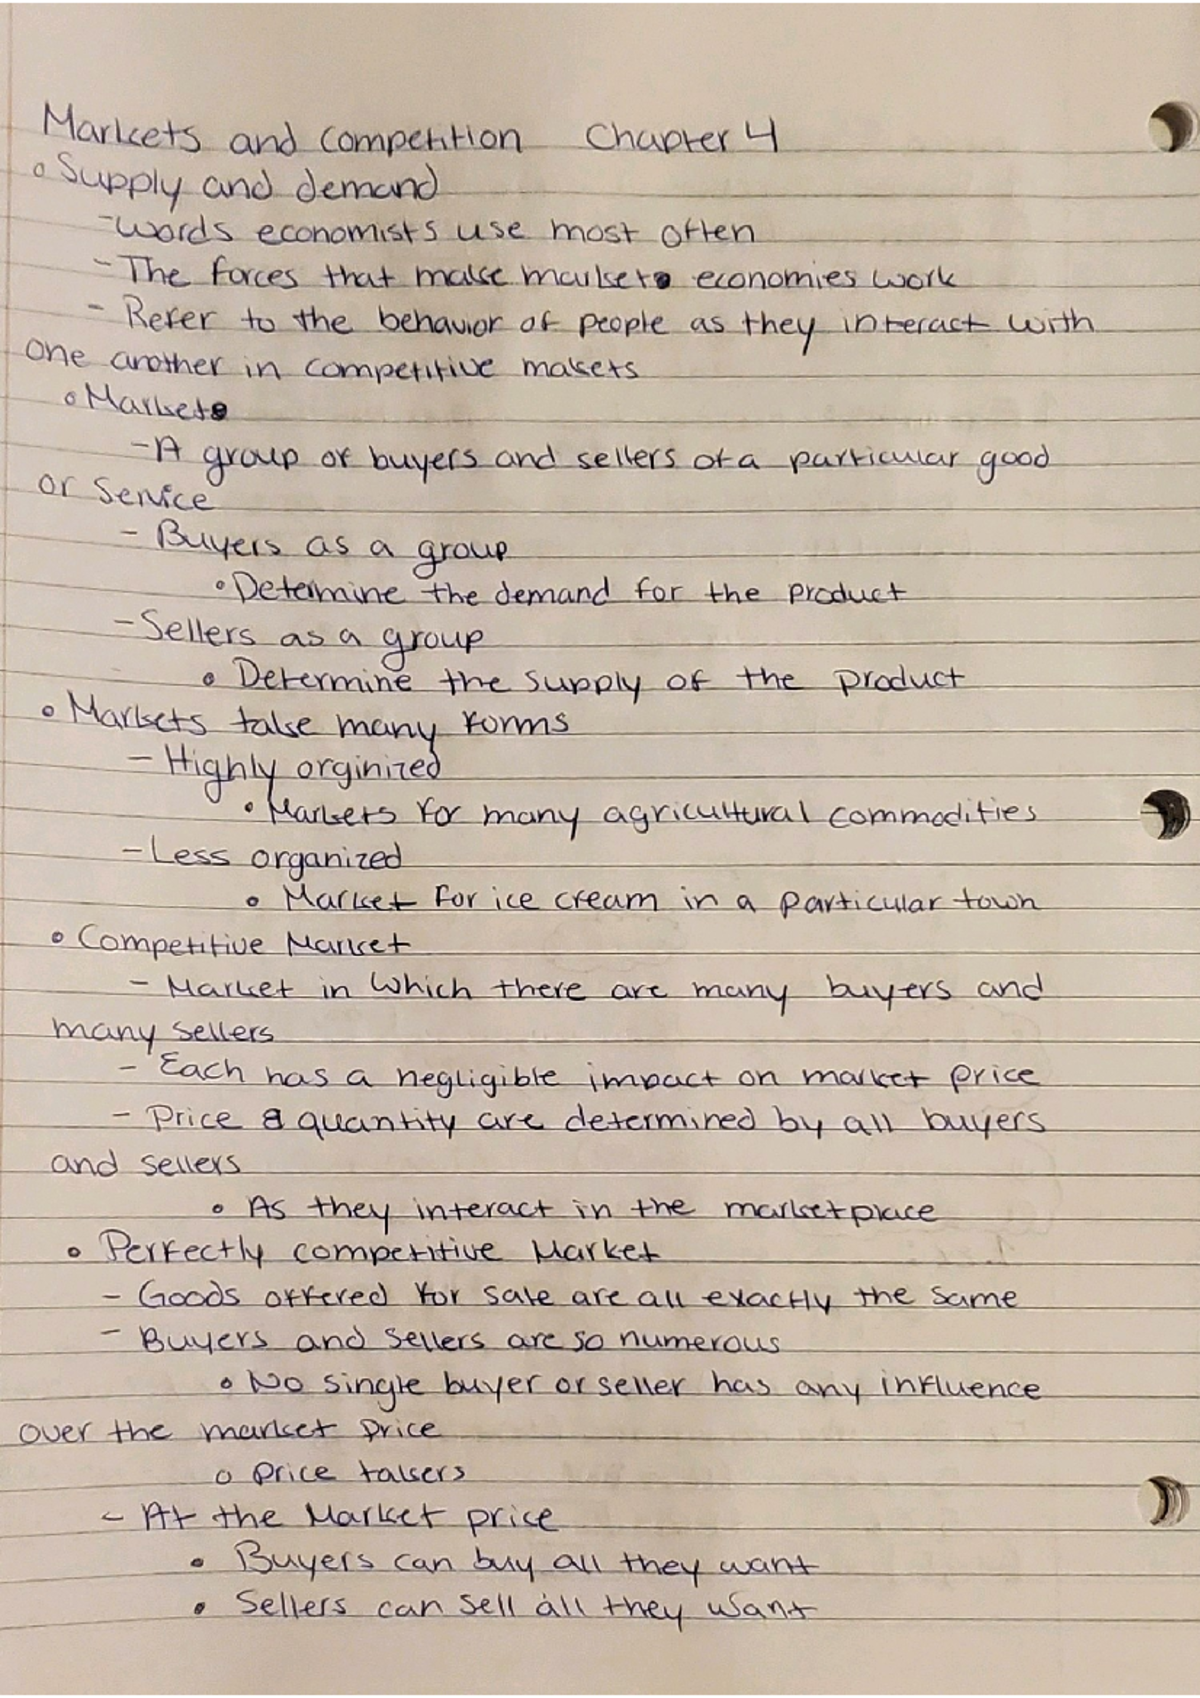 Markets and Competition Chapter 4
◦ Supply and demand
- Words economists use most often
- The forces that make market economies work
- Refer to the behavior of people as they interact with
one another in competitive makets
◦ Market
- A group of buyers and sellers of a particular good
or service
- Buyers as a group
• Determine the demand for the product
- Sellers as a group
• Determine the supply of the product
• Markets take many forms
- Highly orginized
• Markets for many agricultural commodities
- Less organized
• Market for ice cream in a particular town
• Competitive Market
- Market in which there are many buyers and
many sellers
- Each has a negligible impact on market price
- Price & quantity are determined by all buyers
and sellers
• As they interact in the marketplace
• Perfectly competitive Market
- Goods offered for sale are all exactly the same
- Buyers and sellers are so numerous
• No single buyer or seller has any influence
over the market price
o Price takers
- At the Market price
• Buyers can buy all they want
• Sellers can sell all they want